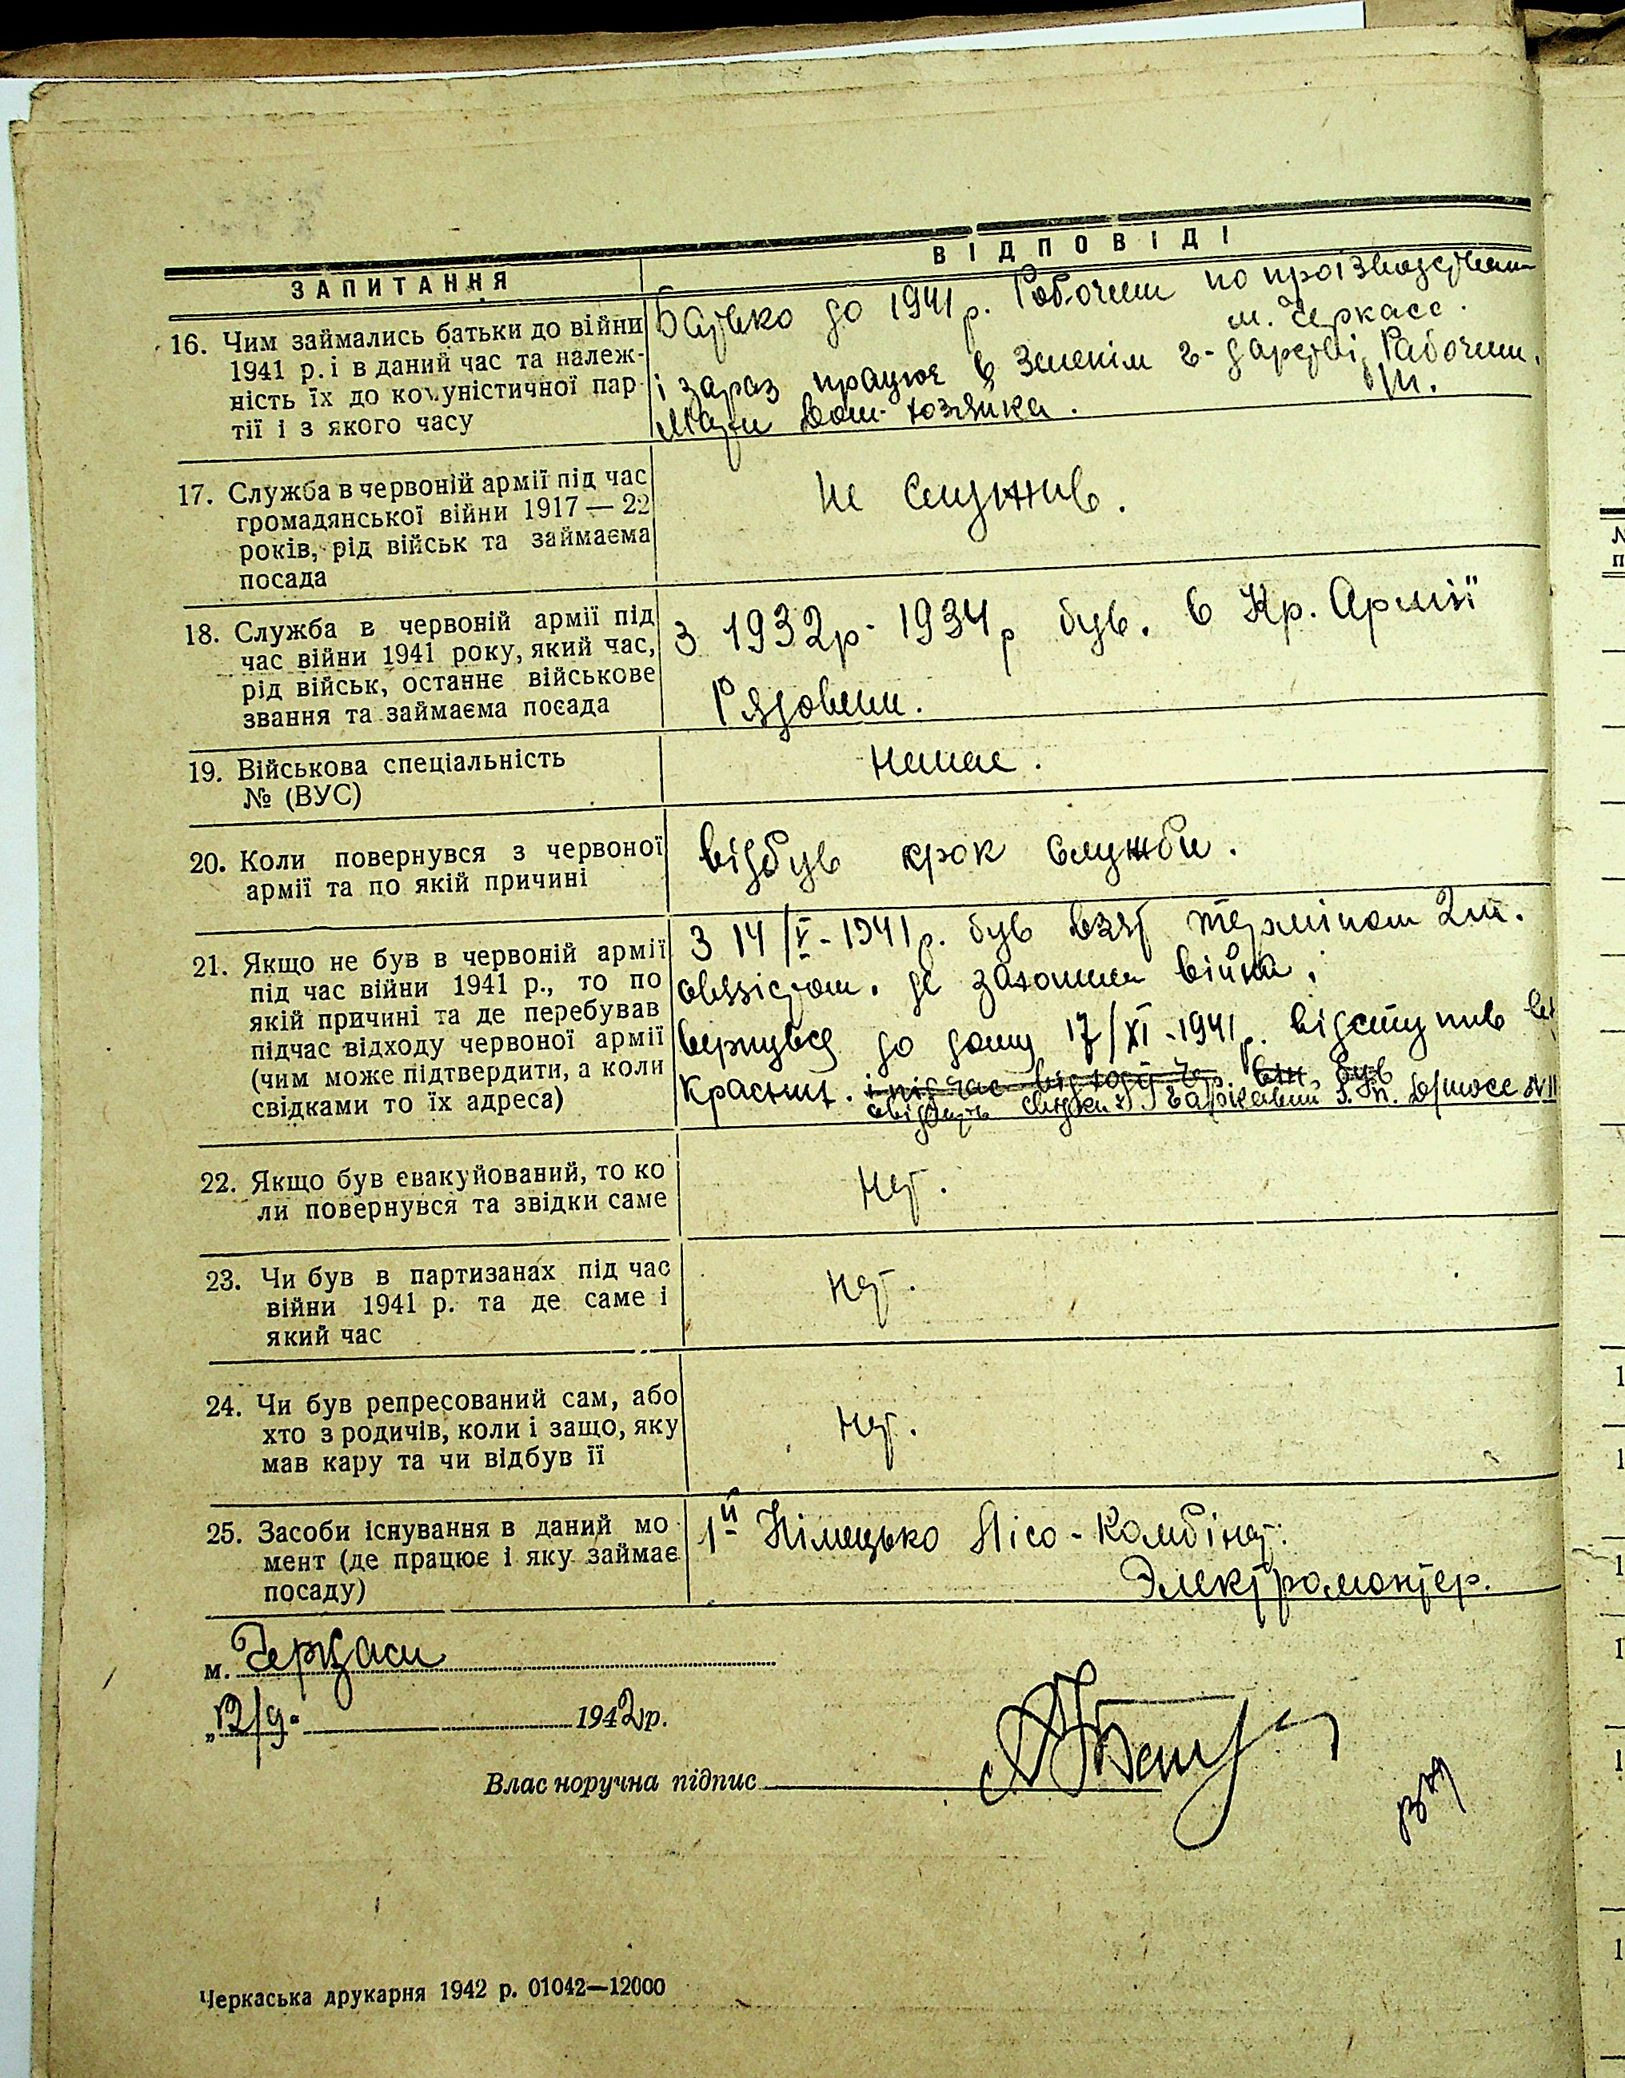 ЗАПИТАННЯ
ВІДПОВІДІ
16. Чим займались батьки до війни
1941 р. і в даний час та належ-
ність їх до комуністичної пар-
тії і з якого часу
Батько до 1941 р. Робочим по производствам
м. Черкасс.
і зараз працює в Зеленім г-дарстві Рабочим.
Мати Дом-хозяйка.
17. Служба в червоній армії під час
громадянської війни 1917 — 22
років, рід військ та займаєма
посада
не служив.
18. Служба в червоній армії під
час війни 1941 року, який час,
рід військ, останнє військове
звання та займаєма посада
з 1932р - 1934р був. в Кр. Армії
Рядовим.
19. Військова спеціальність
№ (ВУС)
немає.
20. Коли повернувся з червоної
армії та по якій причині
відбув срок служби.
21. Якщо не був в червоній армії
під час війни 1941 р., то по
якій причині та де перебував
підчас відходу червоної армії
(чим може підтвердити, а коли
свідками то їх адреса)
З 14/V - 1941р. був взят терміном 2м.
де війна.
вернувся до дому 17/XI - 1941р. відступив
Красниц.
22. Якщо був евакуйований, то ко
ли повернувся та звідки саме
нет.
23. Чи був в партизанах під час
війни 1941 р. та де саме і
який час
нет.
24. Чи був репресований сам, або
хто з родичів, коли і защо, яку
мав кару та чи відбув її
нет.
25. Засоби існування в даний мо-
мент (де працює і яку займає
посаду)
1й Німецько Лісо-Комбінат:
Электромонтер.
м. Черкаси
„12/9." 1942 р.
Власноручна підпис
Черкаська друкарня 1942 р. 01042—12000